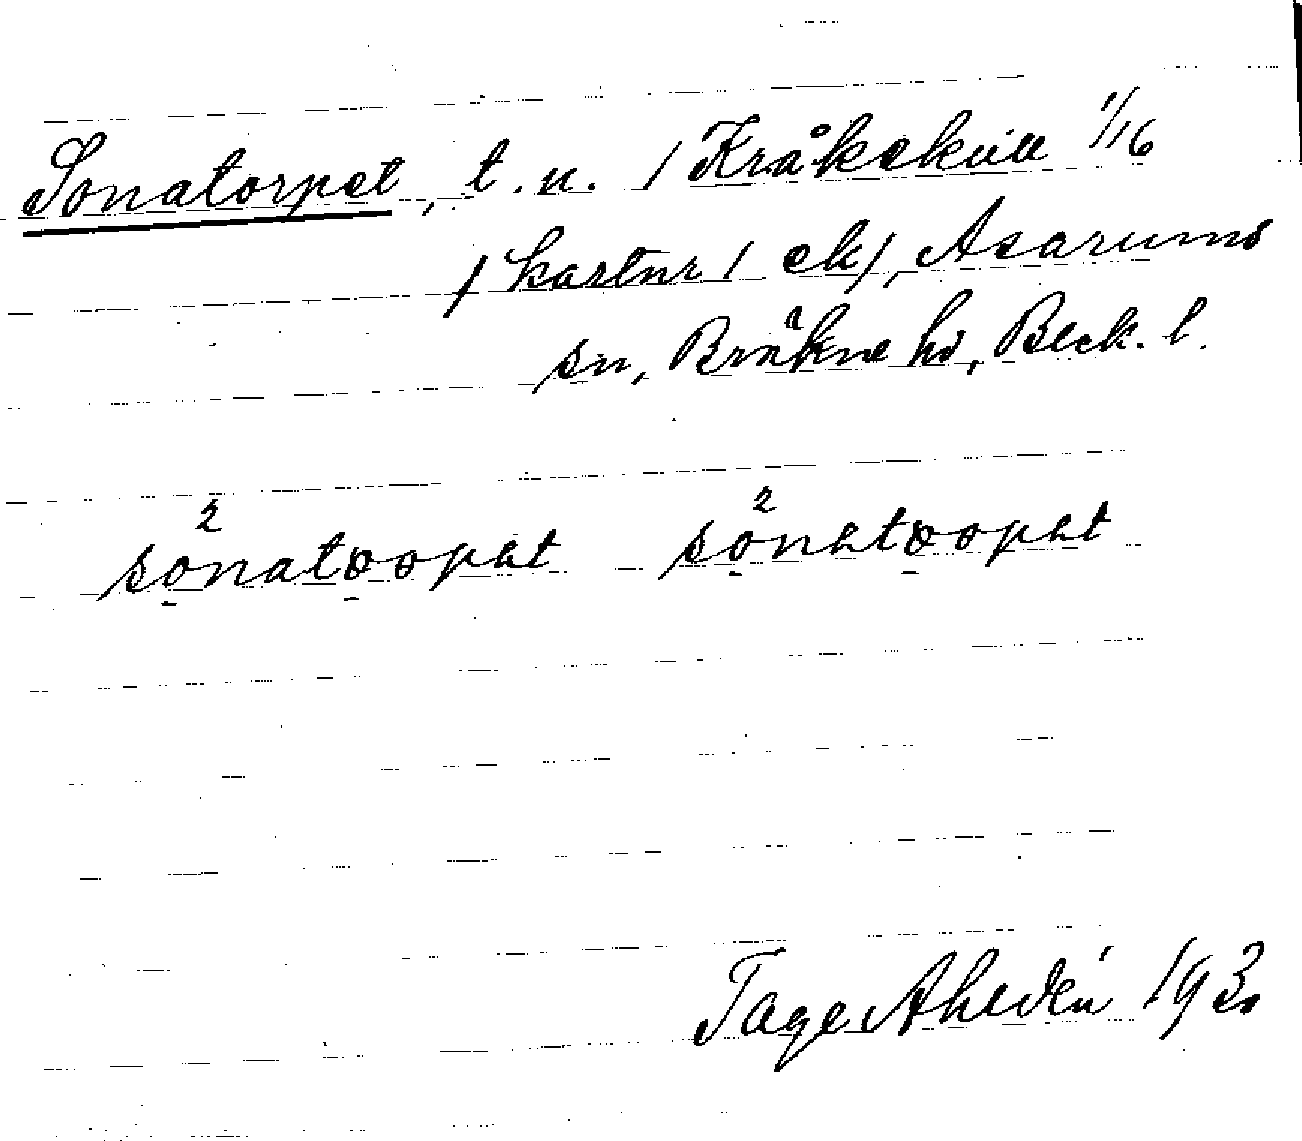 Sonatorpet, t. u. / Kråkekull 1/16
/ kartnr / ek/, Asarums
sn, Bräkne hd, Bleck. l.
2 2
sonatoopet sonetoopet
Tage Ahldén 193